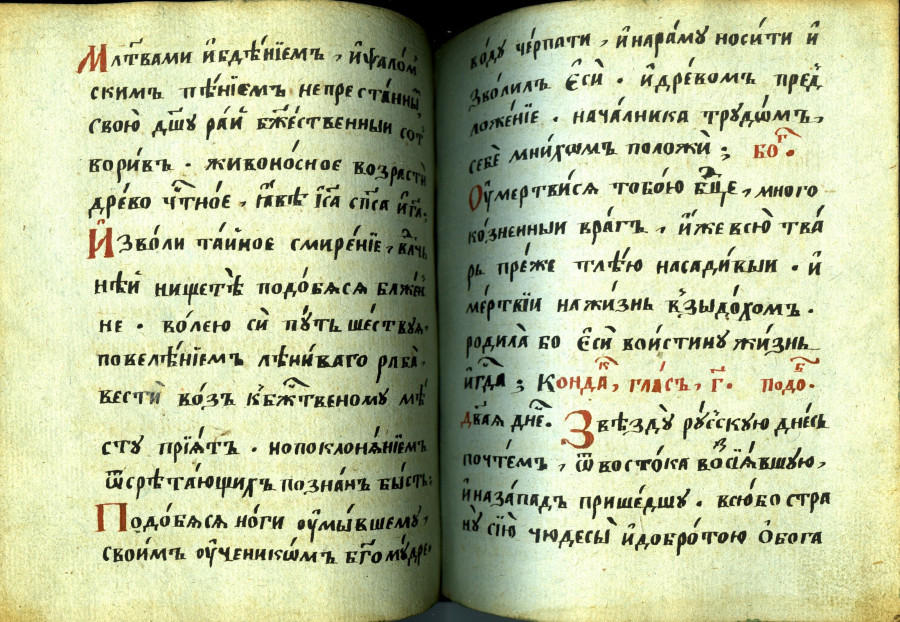 Мл҃твами и҆бдѣ́нїемъ, и҆ѱало́м
скимъ пѣ́нїемъ непреста́нны
свою̀ дш҃у ра́й бж҃е́ственныи сот
вори́въ. живоно́сное возрасти
дре́во чт҃но́е, ꙗ҆́вѣ і҆с҃а сп҃са и҆г҃а;
И҆зво́ли та́йное смире́нїе, вл҃чь
нѣ́й нищетѣ̀ подо́бѧсѧ бл҃же́н
не. во́лею сѝ пу́ть ше́ствуѧ,
повелѣ́нїемъ лѣни́ваго раба̀,
вестѝ во́зъ к̾бж҃твеному мѣ́
сту прїѧ́тъ. но поклонѧ́нїемъ
ѿ срѣта́ющихъ позна́нъ бы́сть;
Подо́бѧсѧ но́ги ᲂу҆мы́вшему,
свои́мъ ᲂу҆чн҃икѡ́мъ бг҃ому́дре
во́ду че́рпати, и҆ на ра́му носи́ти и҆
зво́лилъ є҆сѝ. и҆ дре́вомъ пред̾
ложе́нїе. нача́лника трудѡ́мъ,
себѐ мни́хѡмъ положѝ; бо́г.
Оу҆мертви́сѧ тобо́ю бц҃е, много
ко́зненныи вра́гъ, и҆́же всю̀ тва́
рь пре́же тлѣ́ю насади́выи. и҆
ме́ртвїи на жи́знь в̾зыдо́хомъ.
родила̀ бо є҆сѝ вои́стину жи́знь
и҆г҃да; Конда́к, гла́съ, г҃. подо́б.
дв҃аѧ дн҃е. Звѣздꙋ̀ ру́сскую дне́сь
почте́мъ, ѿ восто́ка возсїѧ́вшую,
и҆ на за́падъ прише́дшу. всю̀ бо стра
нꙋ̀ сїю̀ чюдесы̀ и҆ добро́тою ѻ҆бога